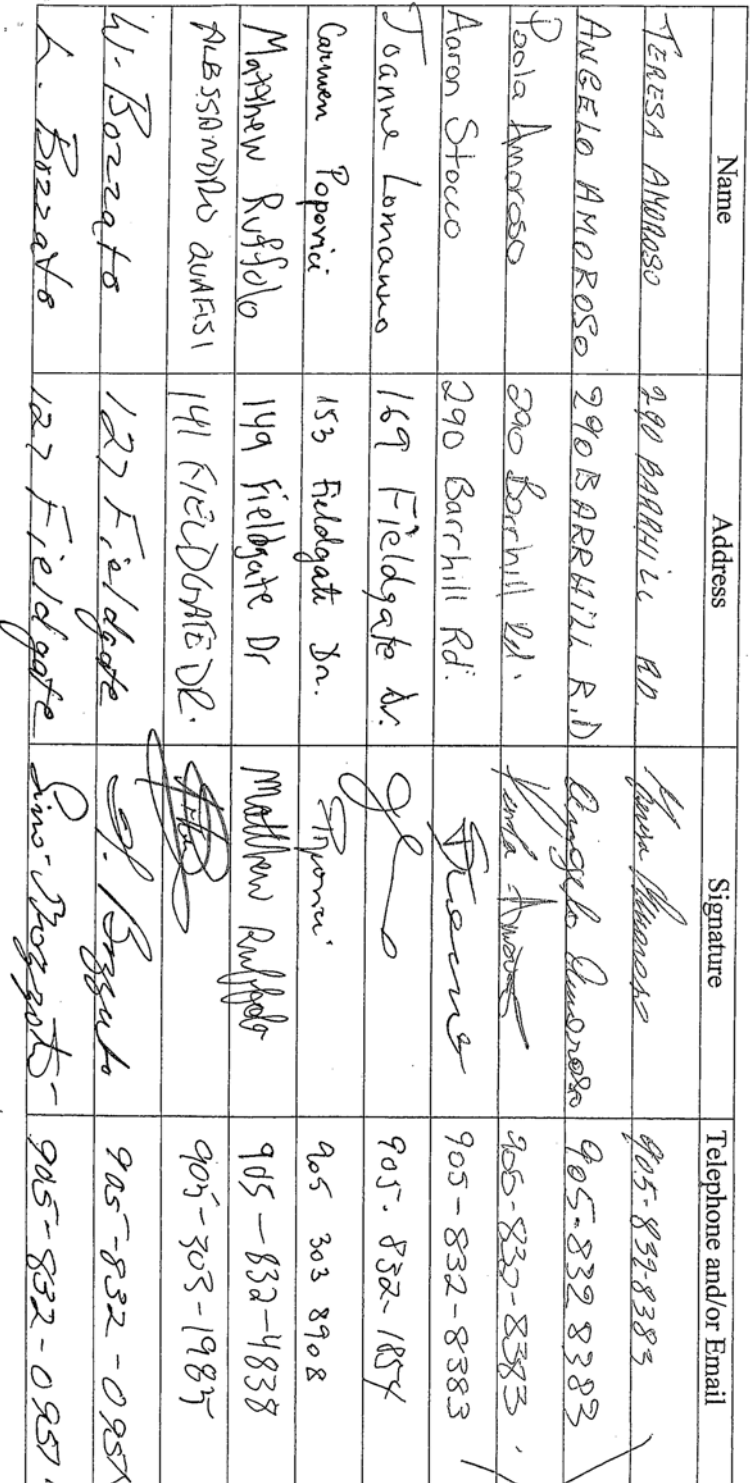 Name Address Signature Telephone and/or Email
TERESA AMOROSO 290 BARRHILL RD. 905-832-8383
ANGELO AMOROSO 290 BARRHILL R.D Angelo Amoroso 905-832 8383
Paola Amoroso 290 Barrhill Rd. Paola Amoroso 905-832-8383
Aaron Stocco 290 Barrhill Rd. 905-832-8383
Joanne Lomanno 169 Fieldgate Dr. 905-832-1854
Carmen Popovici 153 Fieldgate Dr. Popovici 905 303 8908
Matthew Ruffolo 149 Fieldgate Dr Matthew Ruffolo 905-832-4838
ALESSANDRO 141 FIELDGATE DR. 905-303-1985
Bozzato 127 Fieldgate Bozzato 905-832-095
L. Bozzato 127 Fieldgate Lino Bozzato 905-832-0957